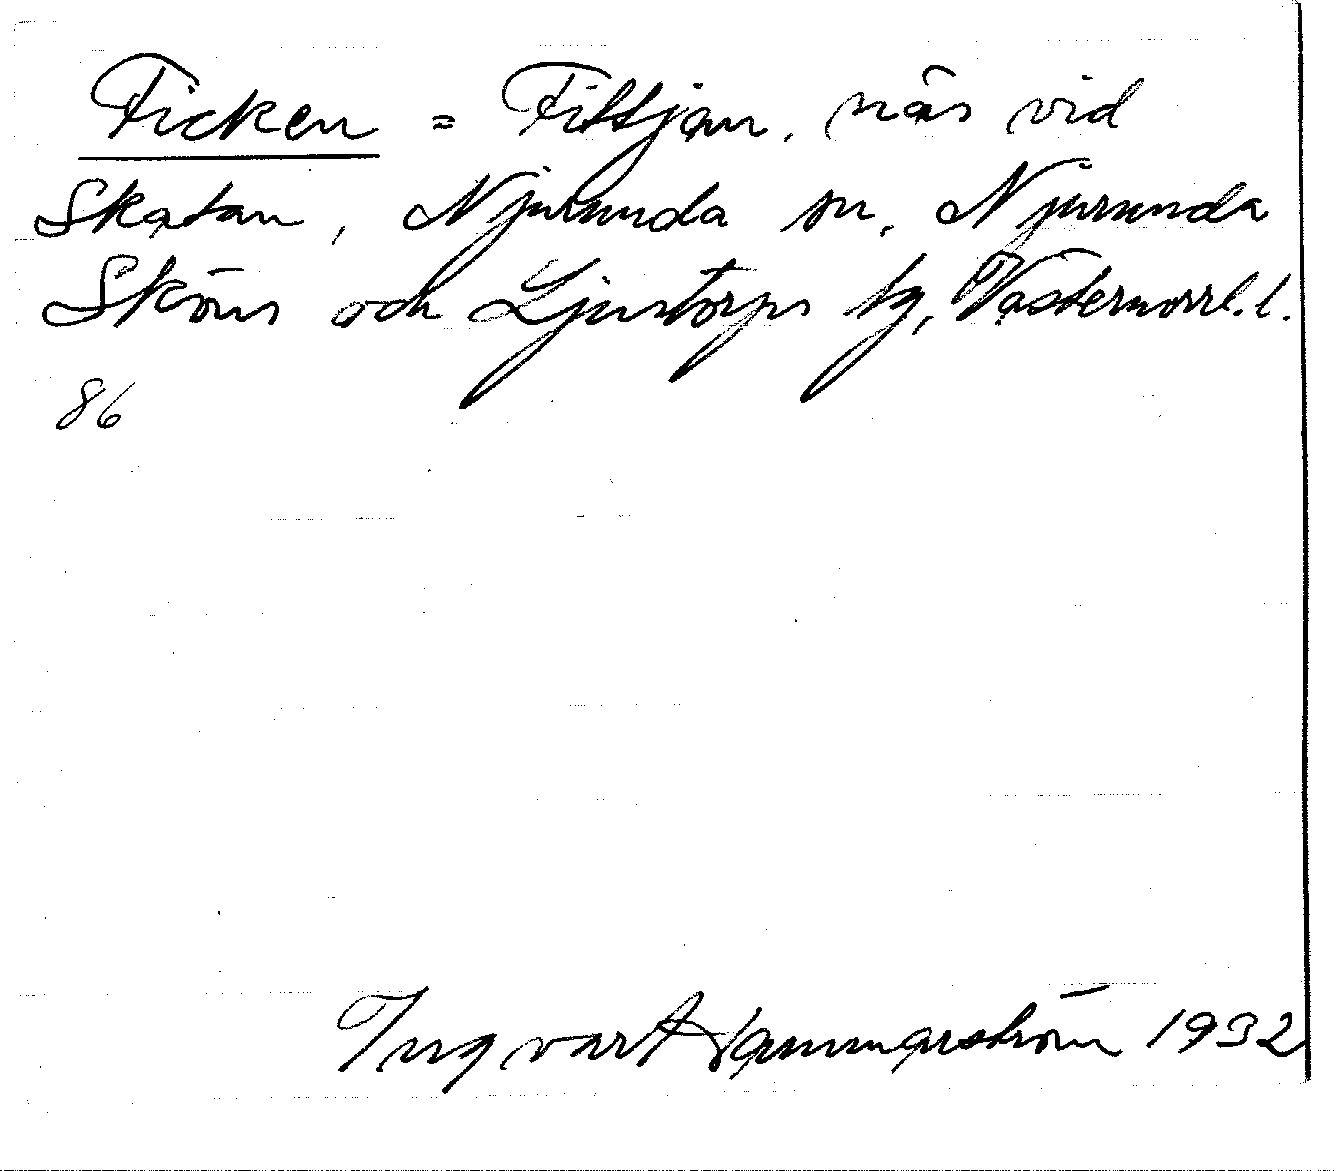 Ficken = Fittjan, näs vid
Skatan, Njurunda sn, Njurunda
Sköns och Ljustorps tg, Västernorrl. l.
86
Ingvart Hammarström 1932